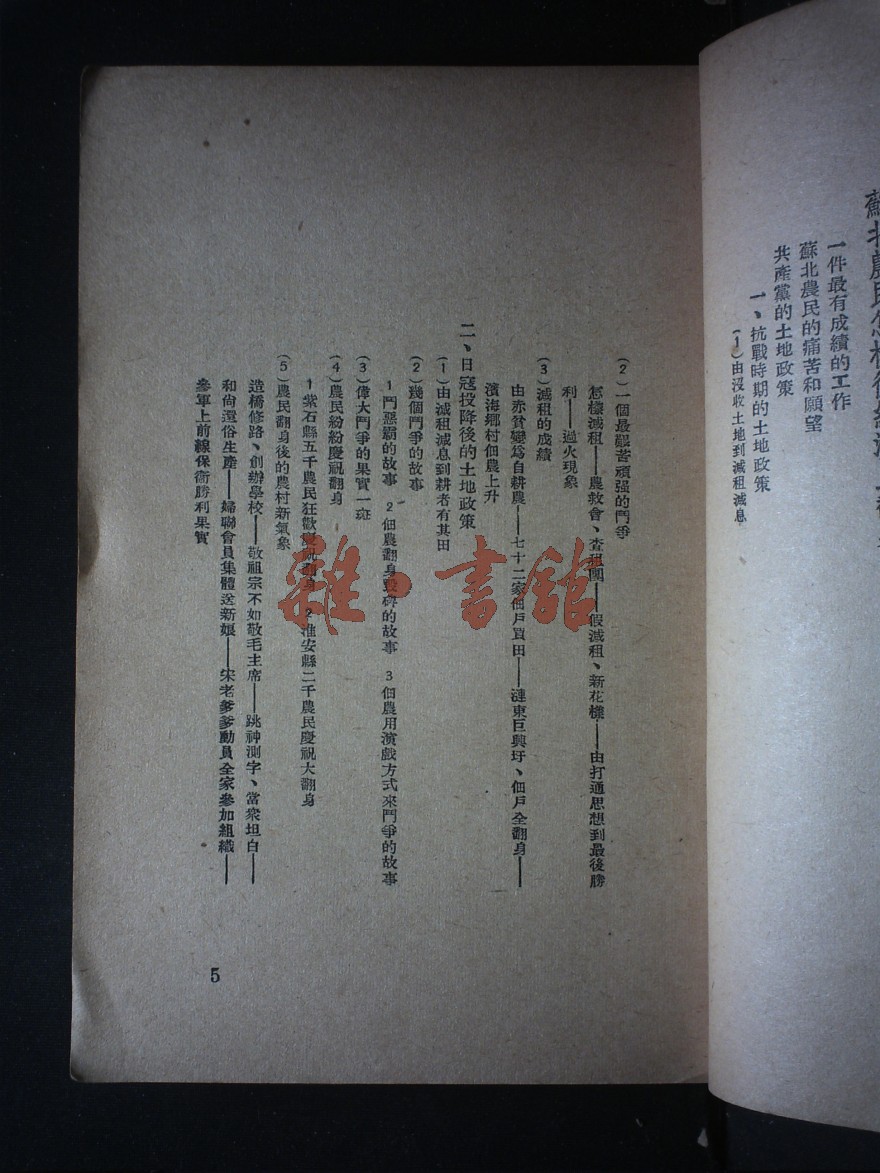 蘇北農民怎樣
一件最有成績的工作
蘇北農民的痛苦和願望
共產黨的土地政策
一、抗戰時期的土地政策
(1)由沒收土地到減租減息
(2)一個最艱苦頑强的鬥爭
怎樣減租——農救會、查租團——假減租、新花樣——由打通思想到最後勝
利——過火現象
(3)減租的成績
由赤貧變爲自耕農——七十二家佃戶買田——漣東巨興圩、佃戶全翻身——
濱海鄉村佃農上升
二、日寇投降後的土地政策
(1)由減租減息到耕者有其田
(2)幾個鬥爭的故事
1鬥惡霸的故事 2佃農翻身毀碑的故事 3佃農用演戲方式來鬥爭的故事
(3)偉大鬥爭的果實一斑
(4)農民紛紛慶祝翻身
1紫石縣五千農民狂歡慶祝翻身 2淮安縣二千農民慶祝大翻身
(5)農民翻身後的農村新氣象
造橋修路、創辦學校——敬祖宗不如敬毛主席——跳神測字、當衆坦白——
和尚還俗生產——婦聯會員集體送新娘——宋老爹爹動員全家參加組織——
參軍上前線保衛勝利果實
5
雜·書館